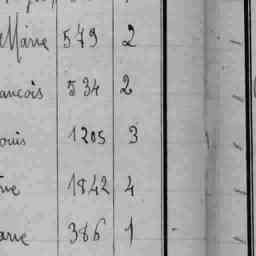 Marie 549 2
ançois 534 2
ouis 1205 3
1842 4
arie 386 1